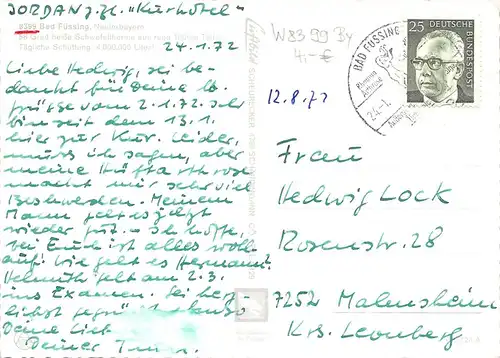 JORDAN z.Zt. "Kurhotel"
8399 Bad Füssing, Niederbayern
56 Grad heiße Schwefeltherme aus 1000 Meter Tiefe
Tägliche Schüttung: 4.000.000 Liter
24.1.72
Liebe Hedwig, sei be-
dankt für Deine lb.
Grüsse vom 2.1.72. Ich
bin seit dem 13.1.
hier zur Kur. Leider,
muss ich sagen, aber
meine Hüftarthrose
macht mir sehr viel
Beschwerden. Meinem
Mann geht es jetzt
wieder gut. – Ich hoffe,
bei Euch ist alles wohl-
auf. Wie geht es Hermann?
Helmuth geht am 2.3.
ins Examen. Sei herz-
lichst gegrüsst
Deine
Deiner
W 83 99 By
4,- €
12.8.73
BAD FÜSSING
24.-1.
25
DEUTSCHE
BUNDESPOST
Frau
Hedwig Lock
Rosenstr. 28
7252 Malmsheim
Krs. Leonberg